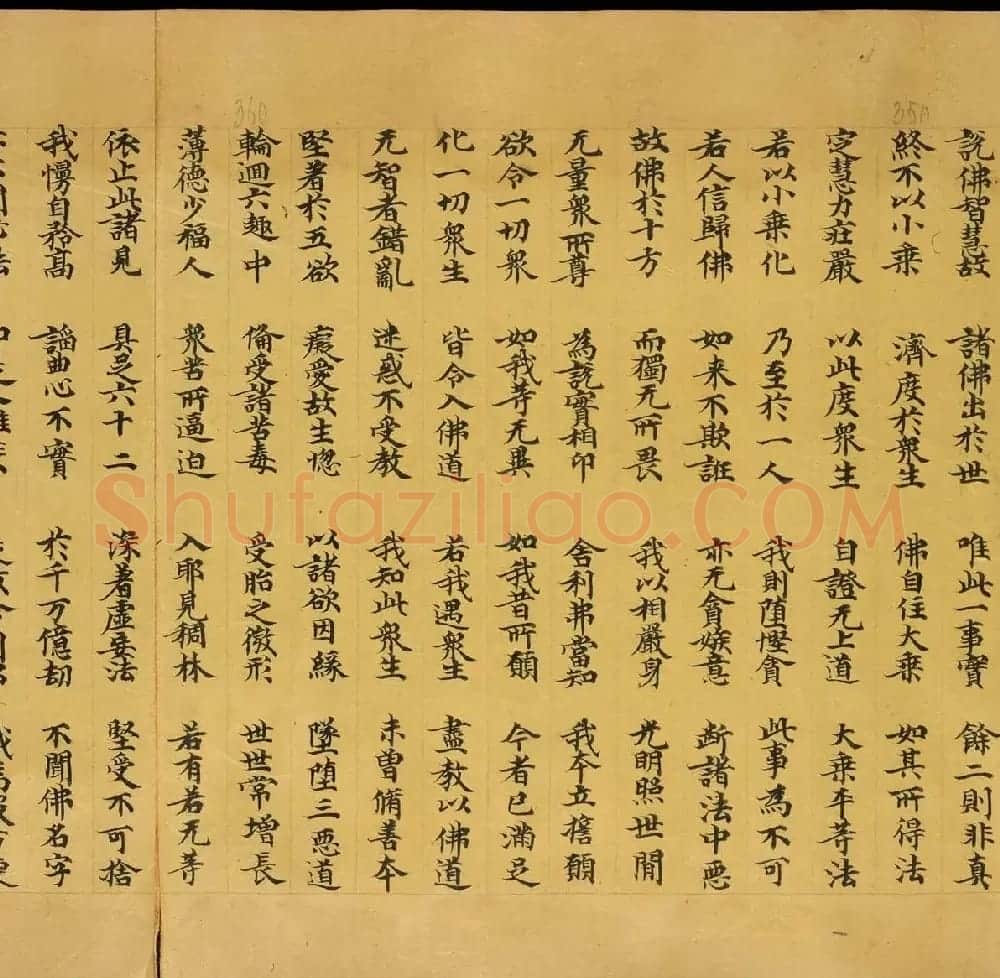 說佛智慧故 諸佛出於世 唯此一事實 餘二則非真
終不以小乗 濟度於衆生 佛自住大乗 如其所得法
定慧力莊嚴 以此度衆生 自證无上道 大乗平等法
若以小乗化 乃至於一人 我則堕慳貪 此事為不可
若人信歸佛 如来不欺誑 亦无貪嫉意 断諸法中惡
故佛於十方 而獨无所畏 我以相嚴身 光明照世間
无量衆所尊 為說實相印 舍利弗當知 我本立誓願
欲令一切衆 如我等无異 如我昔所願 今者已滿足
化一切衆生 皆令入佛道 若我遇衆生 盡教以佛道
无智者錯亂 迷惑不受教 我知此衆生 未曽脩善本
堅著於五欲 癡愛故生惱 以諸欲因緣 墜堕三惡道
輪迴六趣中 俻受諸苦毒 受胎之微形 世世常增長
薄德少福人 衆苦所逼迫 入耶見稠林 若有若无等
依止此諸見 具足六十二 深著虛妄法 堅受不可捨
我慢自矜高 謟曲心不實 於千万億劫 不聞佛名字
Shufaziliao.COM
350
360